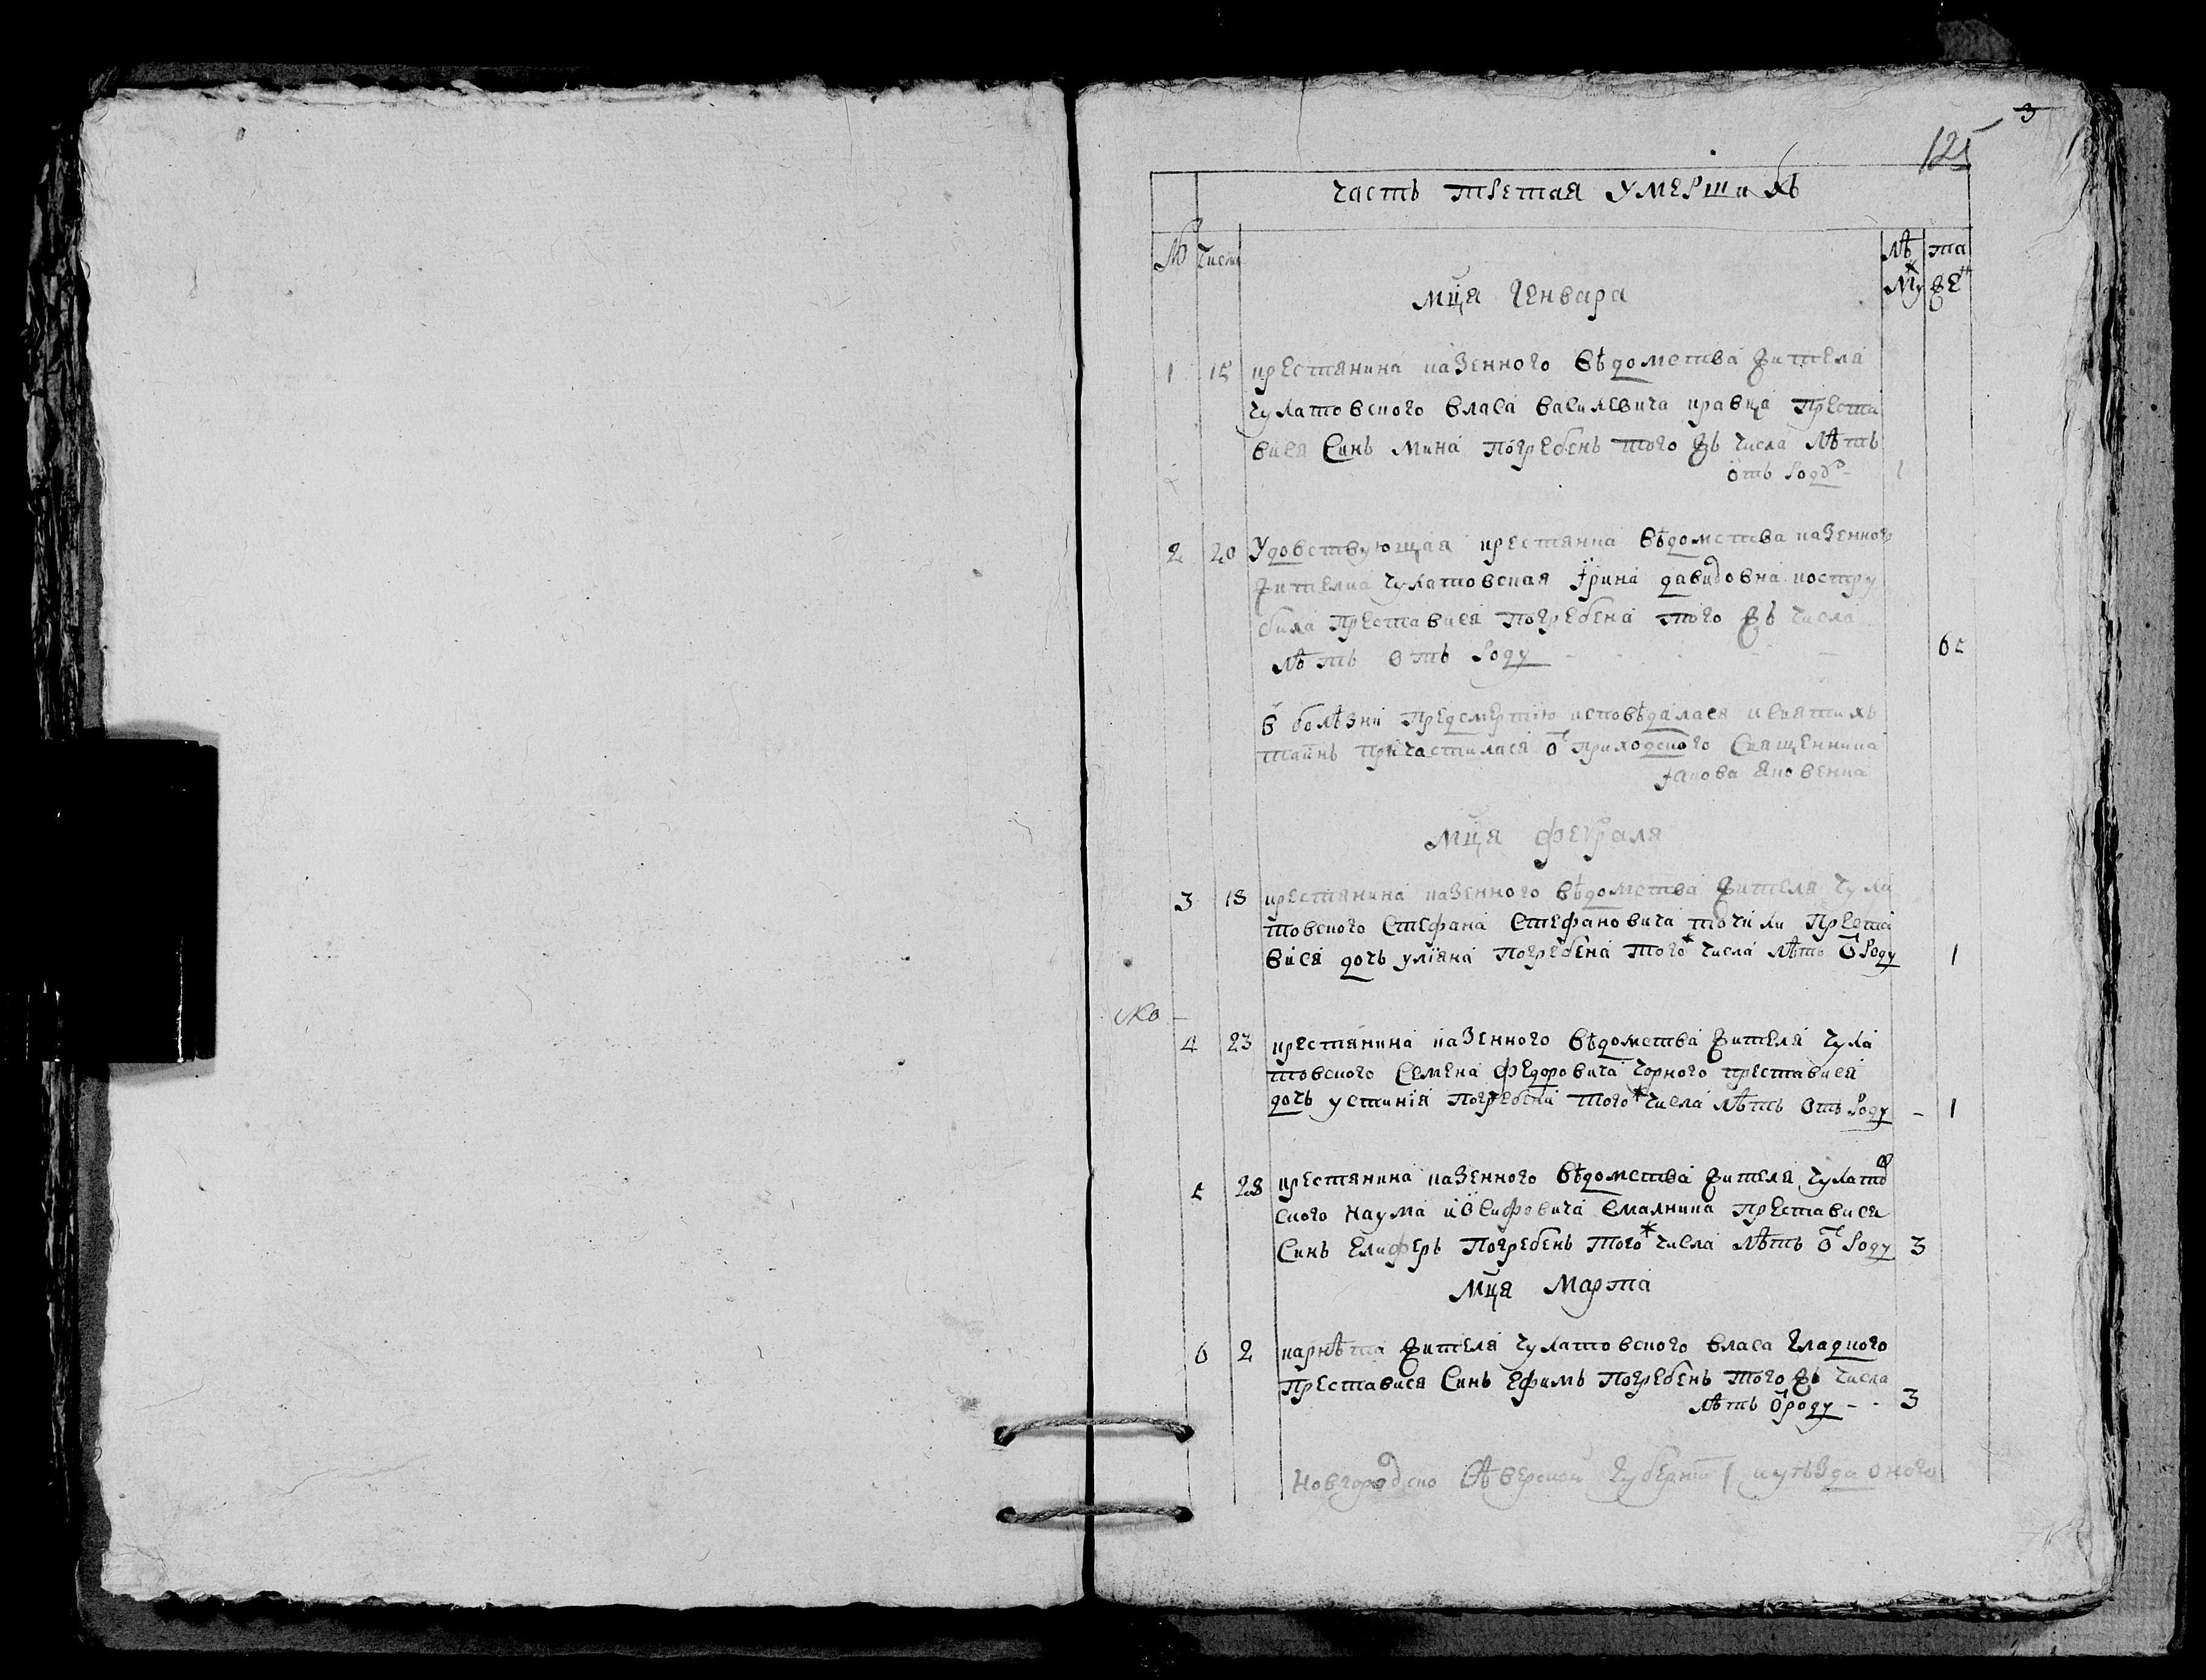 3
125
часть третая умершихъ
№ числа лѣ та
му же
мця генвара
1 15 крестянина казенного вѣдомства жителя
чулатовского власа василевича кравца преста
вися синь мина погребень того жъ числа лѣть
отъ роду - 1
2 20 Удовствующая крестянка вѣдомства казенного
жителка чулатовская Ірина давидовна костру
била преставися погребена того жъ числа
лѣть отъ роду - 65
в болѣзни предсмертію исповѣдалася и святихъ
тайнь причастилася о приходского священника
Іакова яковенка
мця февраля
3 18 крестянина казенного вѣдомства жителя чула
товского стефана стефановича точили преста
вися дочь уліяна погребена того ж числа лѣть о роду 1
4 23 крестянина казенного вѣдомства жителя чула
товского семена федоровича чорного преставися
дочь устинія погребена того ж числа лѣть отъ роду - 1
5 28 крестянина казенного вѣдомства жителя чулатов
ского наума иосифовича смалника преставися
синь елиферъ погребень того ж числа лѣть о роду 3
мця марта
6 2 жителя чулатовского власа гладкого
преставися синь ефимъ погребень того жъ числа
лѣть о роду - - 3
новгородско сѣверской губерніи уѣзда оного